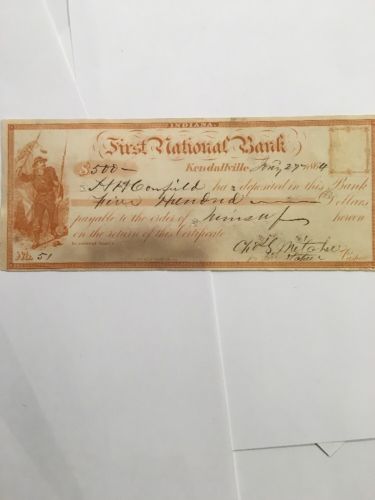 INDIANA.
First National Bank
$500— Kendallville, Aug 27 1864
H H Coxfild has deposited in this Bank
Five Hundred Dollars
payable to the order of himself hereon
on the return of this Certificate
Chs S. Mitchell
No. 51 Cashier